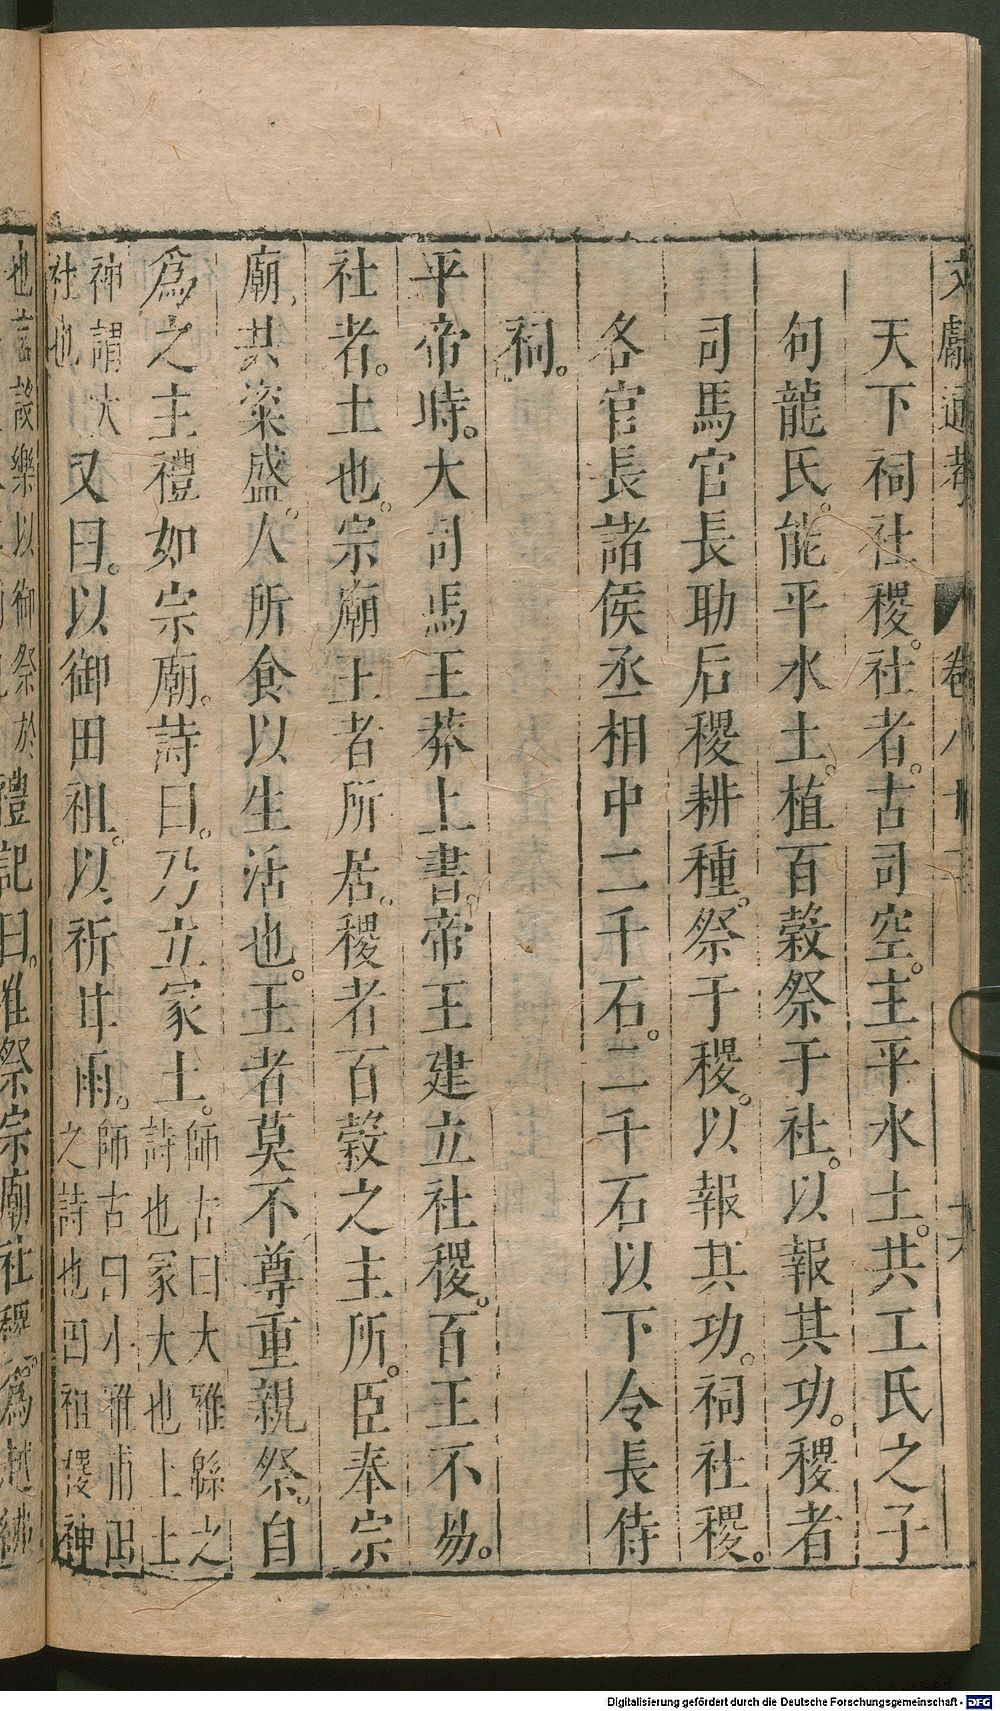 文獻通考 卷八十二 十六
天下祠社稷。社者。古司空。主平水土。共工氏之子
句龍氏。能平水土。植百穀祭于社。以報其功。稷者
司馬官長助后稷耕種。祭于稷。以報其功。祠社稷。
各官長諸侯丞相中二千石。二千石以下令長侍
祠。
平帝時。大司馬王莽上書。帝王建立社稷。百王不易。
社者。土也。宗廟王者所居。稷者百穀之主所。臣奉宗
廟。共粢盛。人所食以生活也。王者莫不尊重親祭。自
爲之主禮如宗廟。詩曰。乃立冢土。師古曰大雅緜之
詩也冢大也土土
神謂大
社也又曰。以御田祖。以祈甘雨。師古曰小雅甫田
之詩也田祖稷神
也言設樂以御祭於禮記曰。唯祭宗廟社稷。爲越紼
Digitalisierung gefördert durch die Deutsche Forschungsgemeinschaft - DFG